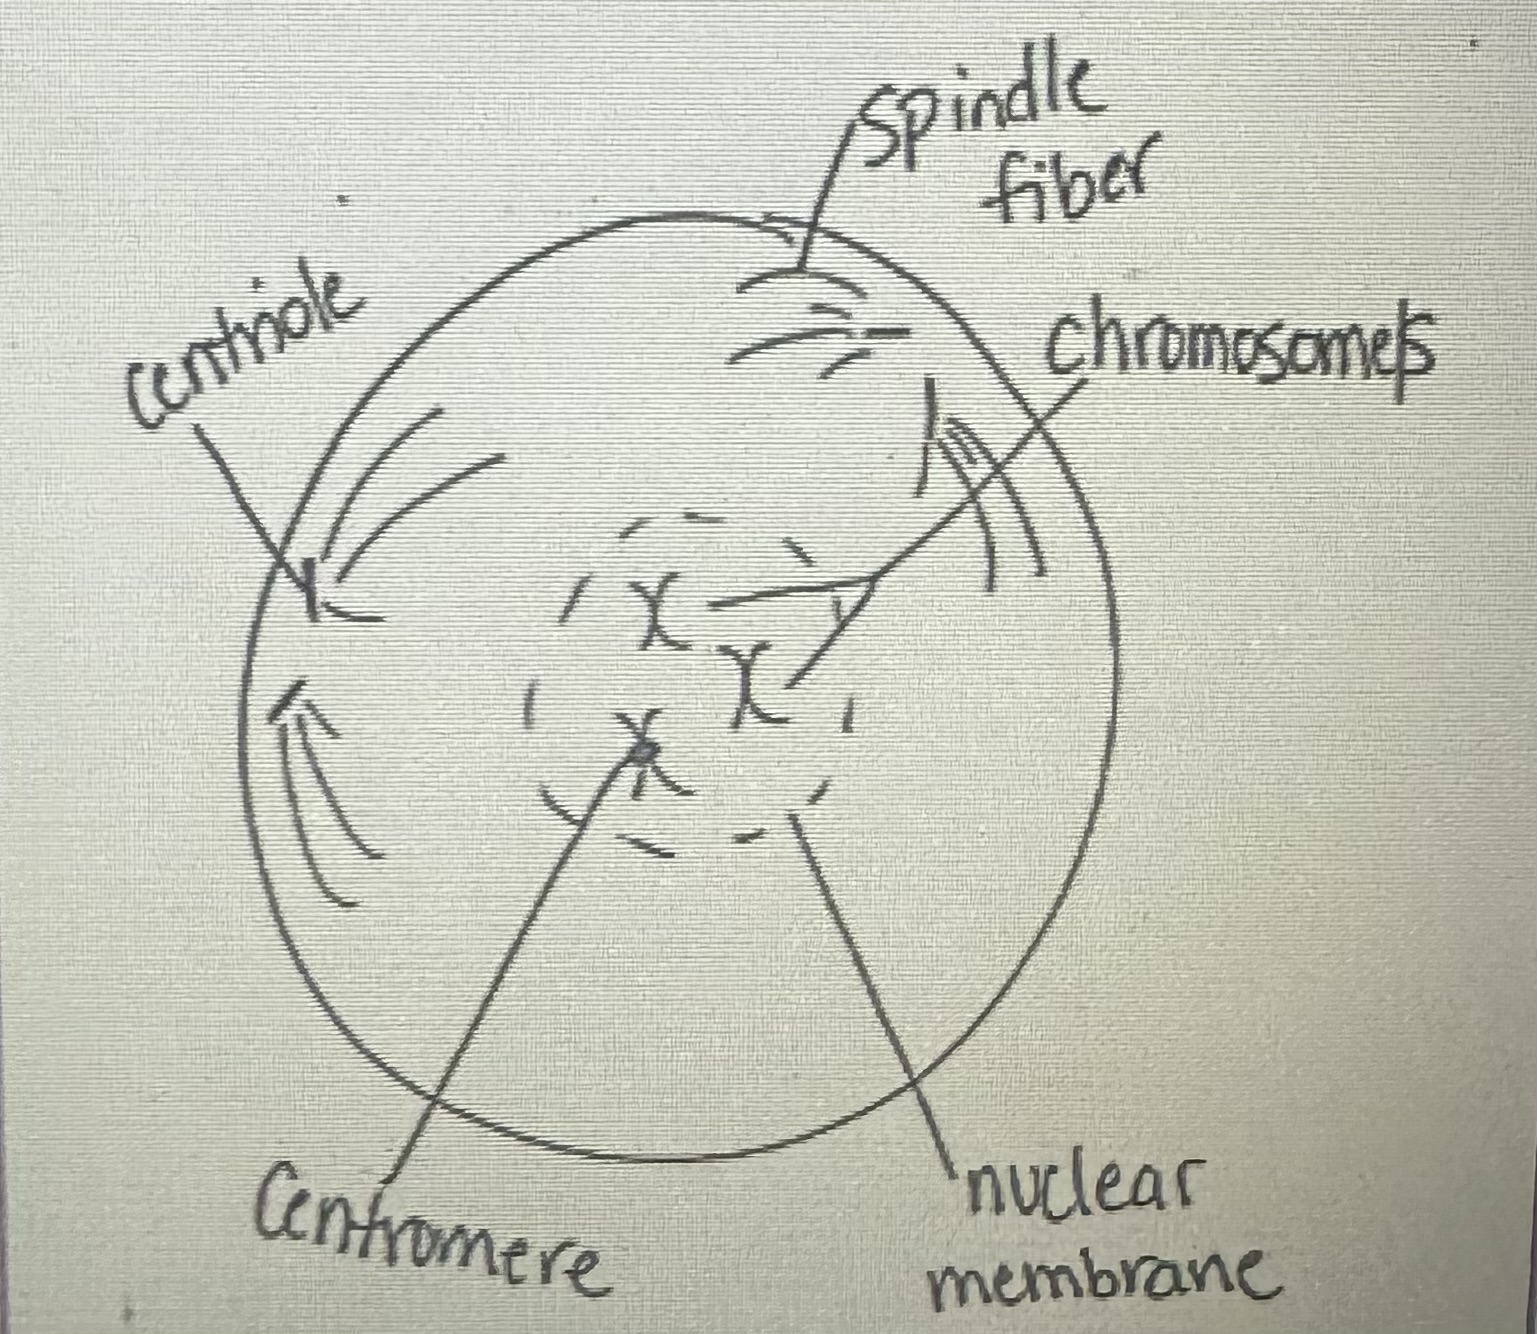 spindle
fiber
centriole
chromosomes
Centromere
nuclear
membrane